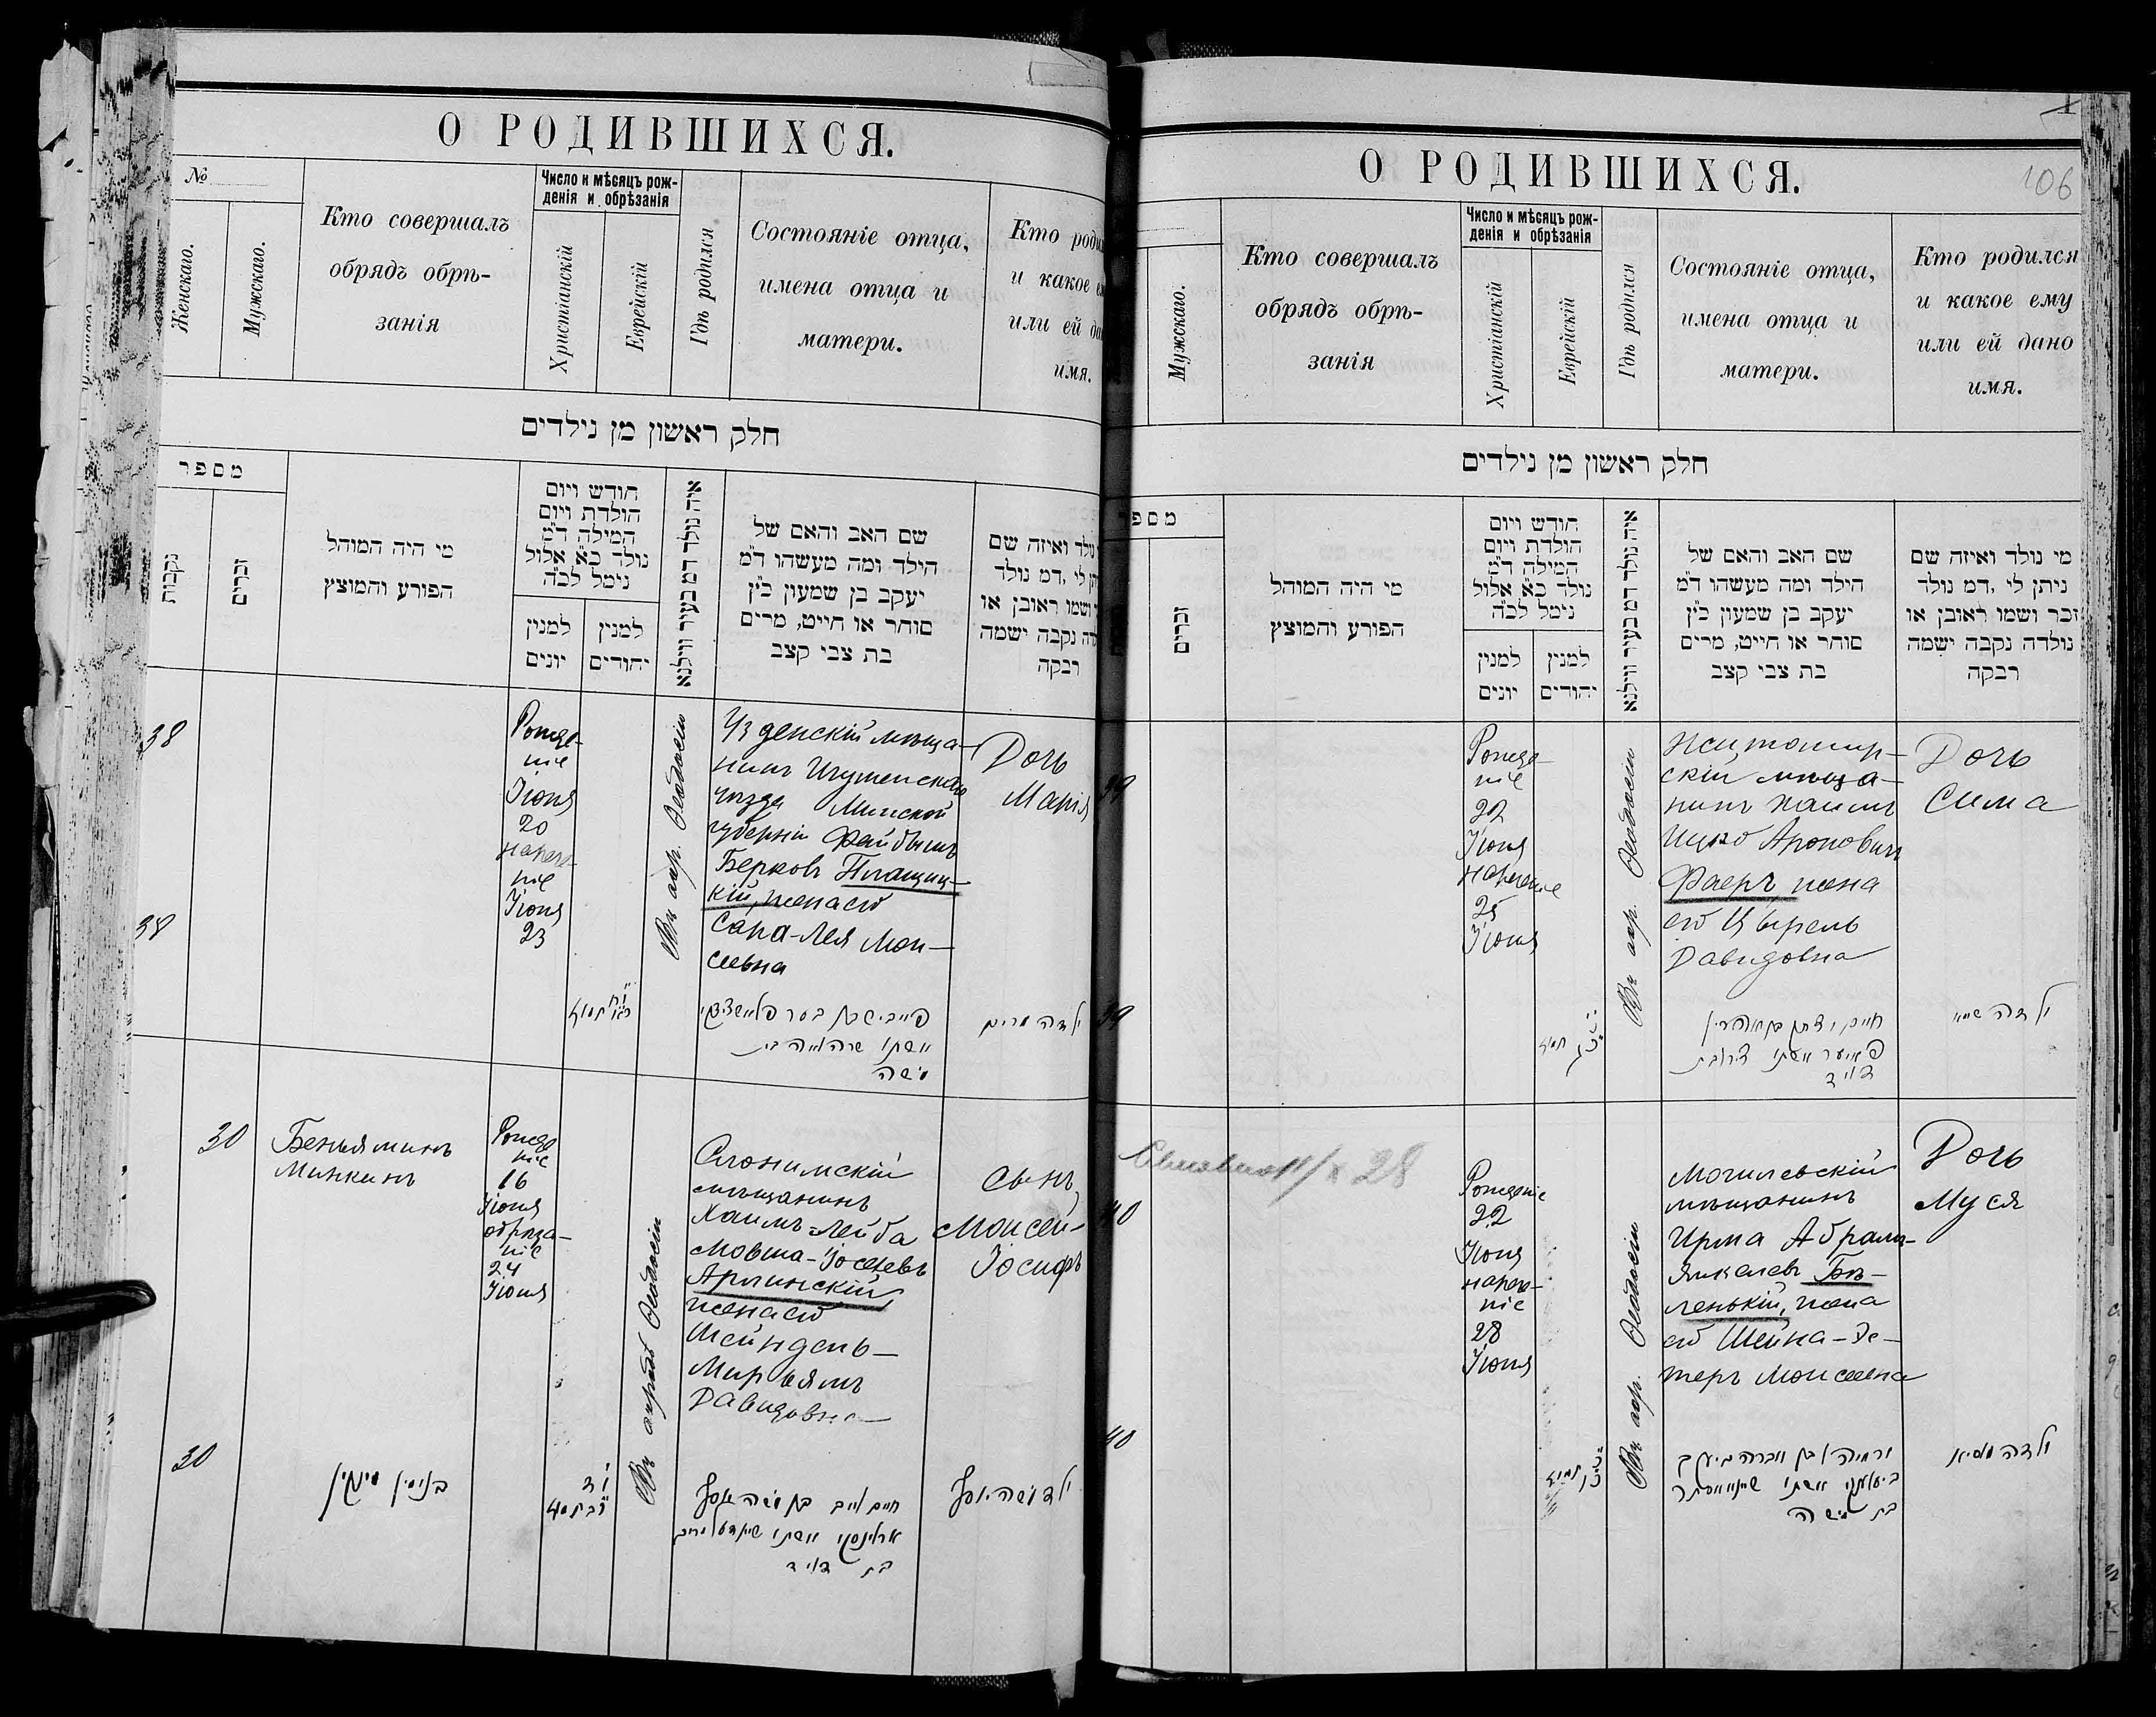 О РОДИВШИХСЯ.
№
Женскаго.
Мужскаго.
Кто совершалъ
обрядъ обрѣ-
занія
Число и мѣсяцъ рож-
денія и обрѣзанія
Христіанскій
Еврейскій
Гдѣ родился
Состояніе отца,
имена отца и
матери.
Кто роди
и какое е
или ей да
имя.
חלק ראשון מן נילדים
מספר
נקבות
זכרים
מי היה המוהל
הפורע והמוצץ
חודש ויום
הולדת ויום
המילה ד״מ
נולד כ״א אלול
נימל לכ״ה
למנין
יונים
למנין
יהודים
איה נולד דמ בעיר ווילנא
שם האב והאם של
הילד ומה מעשהו ד״מ
יעקב בן שמעון כ״ץ
סוחר או חייט, מרים
בת צבי קצב
נולד ואיזה שם
תן לי, דמ נולד
ושמו ראובן או
דה נקבה ישמה
רבקה
38
Рожде-
ніе
Іюня
20
нарече-
ніе
Іюня
23
Въ гор. Ѳеодосіи
Узденскій мѣща-
нинъ Игуменскаго
уѣзда Минской
губерніи Файбишъ
Берковъ
кій, жена его
Сара-Лея Мои-
сеевна
Дочь
Марія
38
תמוז
ואשתו שרה לאה בת
משה
ילדה מרים
30
Беньяминъ
Минкинъ
Рожде
ніе
16
Іюня
обрѣза-
ніе
24
Іюня
Въ городѣ Ѳеодосіи
Слонимскій
мѣщанинъ
Хаимъ-Лейба
Мовша-Іоселевъ
Арлинскій
жена его
Шейндель-
Мирьямъ
Давидовна
Сынъ,
Моисей-
Іосифъ
30
בנימין מינקין
תמוז
חיים לייב בן משה יוסף
ארלינסקי ואשתו שיינדעל מרים
בת דוד
ילד משה יוסף
О РОДИВШИХСЯ.
106
Мужскаго.
Кто совершалъ
обрядъ обрѣ-
занія
Число и мѣсяцъ рож-
денія и обрѣзанія
Христіанскій
Еврейскій
Гдѣ родился
Состояніе отца,
имена отца и
матери.
Кто родился
и какое ему
или ей дано
имя.
חלק ראשון מן נילדים
מספר
זכרים
מי היה המוהל
הפורע והמוצץ
חודש ויום
הולדת ויום
המילה ד״מ
נולד כ״א אלול
נימל לכ״ה
למנין
יונים
למנין
יהודים
איה נולד דמ בעיר ווילנא
שם האב והאם של
הילד ומה מעשהו ד״מ
יעקב בן שמעון כ״ץ
סוחר או חייט, מרים
בת צבי קצב
מי נולד ואיזה שם
ניתן לי, דמ נולד
זכר ושמו ראובן או
נולדה נקבה ישמה
רבקה
39
Рожде-
ніе
22
Іюня
нареченіе
25
Іюня
Въ гор. Ѳеодосіи
Житомир-
скій мѣща-
нинъ Хаимъ
Ицко Ароновичъ
Фаеръ, жена
его Цырель
Давидовна
Дочь
Сима
39
תמוז
פאיער ואשתו צירל בת
דוד
40
28
Рожденіе
22
Іюня
нарече-
ніе
28
Іюня
Въ гор. Ѳеодосіи
Могилевскій
мѣщанинъ
Ирма Абрамъ-
Янкелевъ Бѣ-
ленькій, жена
его Шейна-Эс-
теръ Моисеевна
Дочь
Муся
40
תמוז
בת משה
ילדה מוסיא